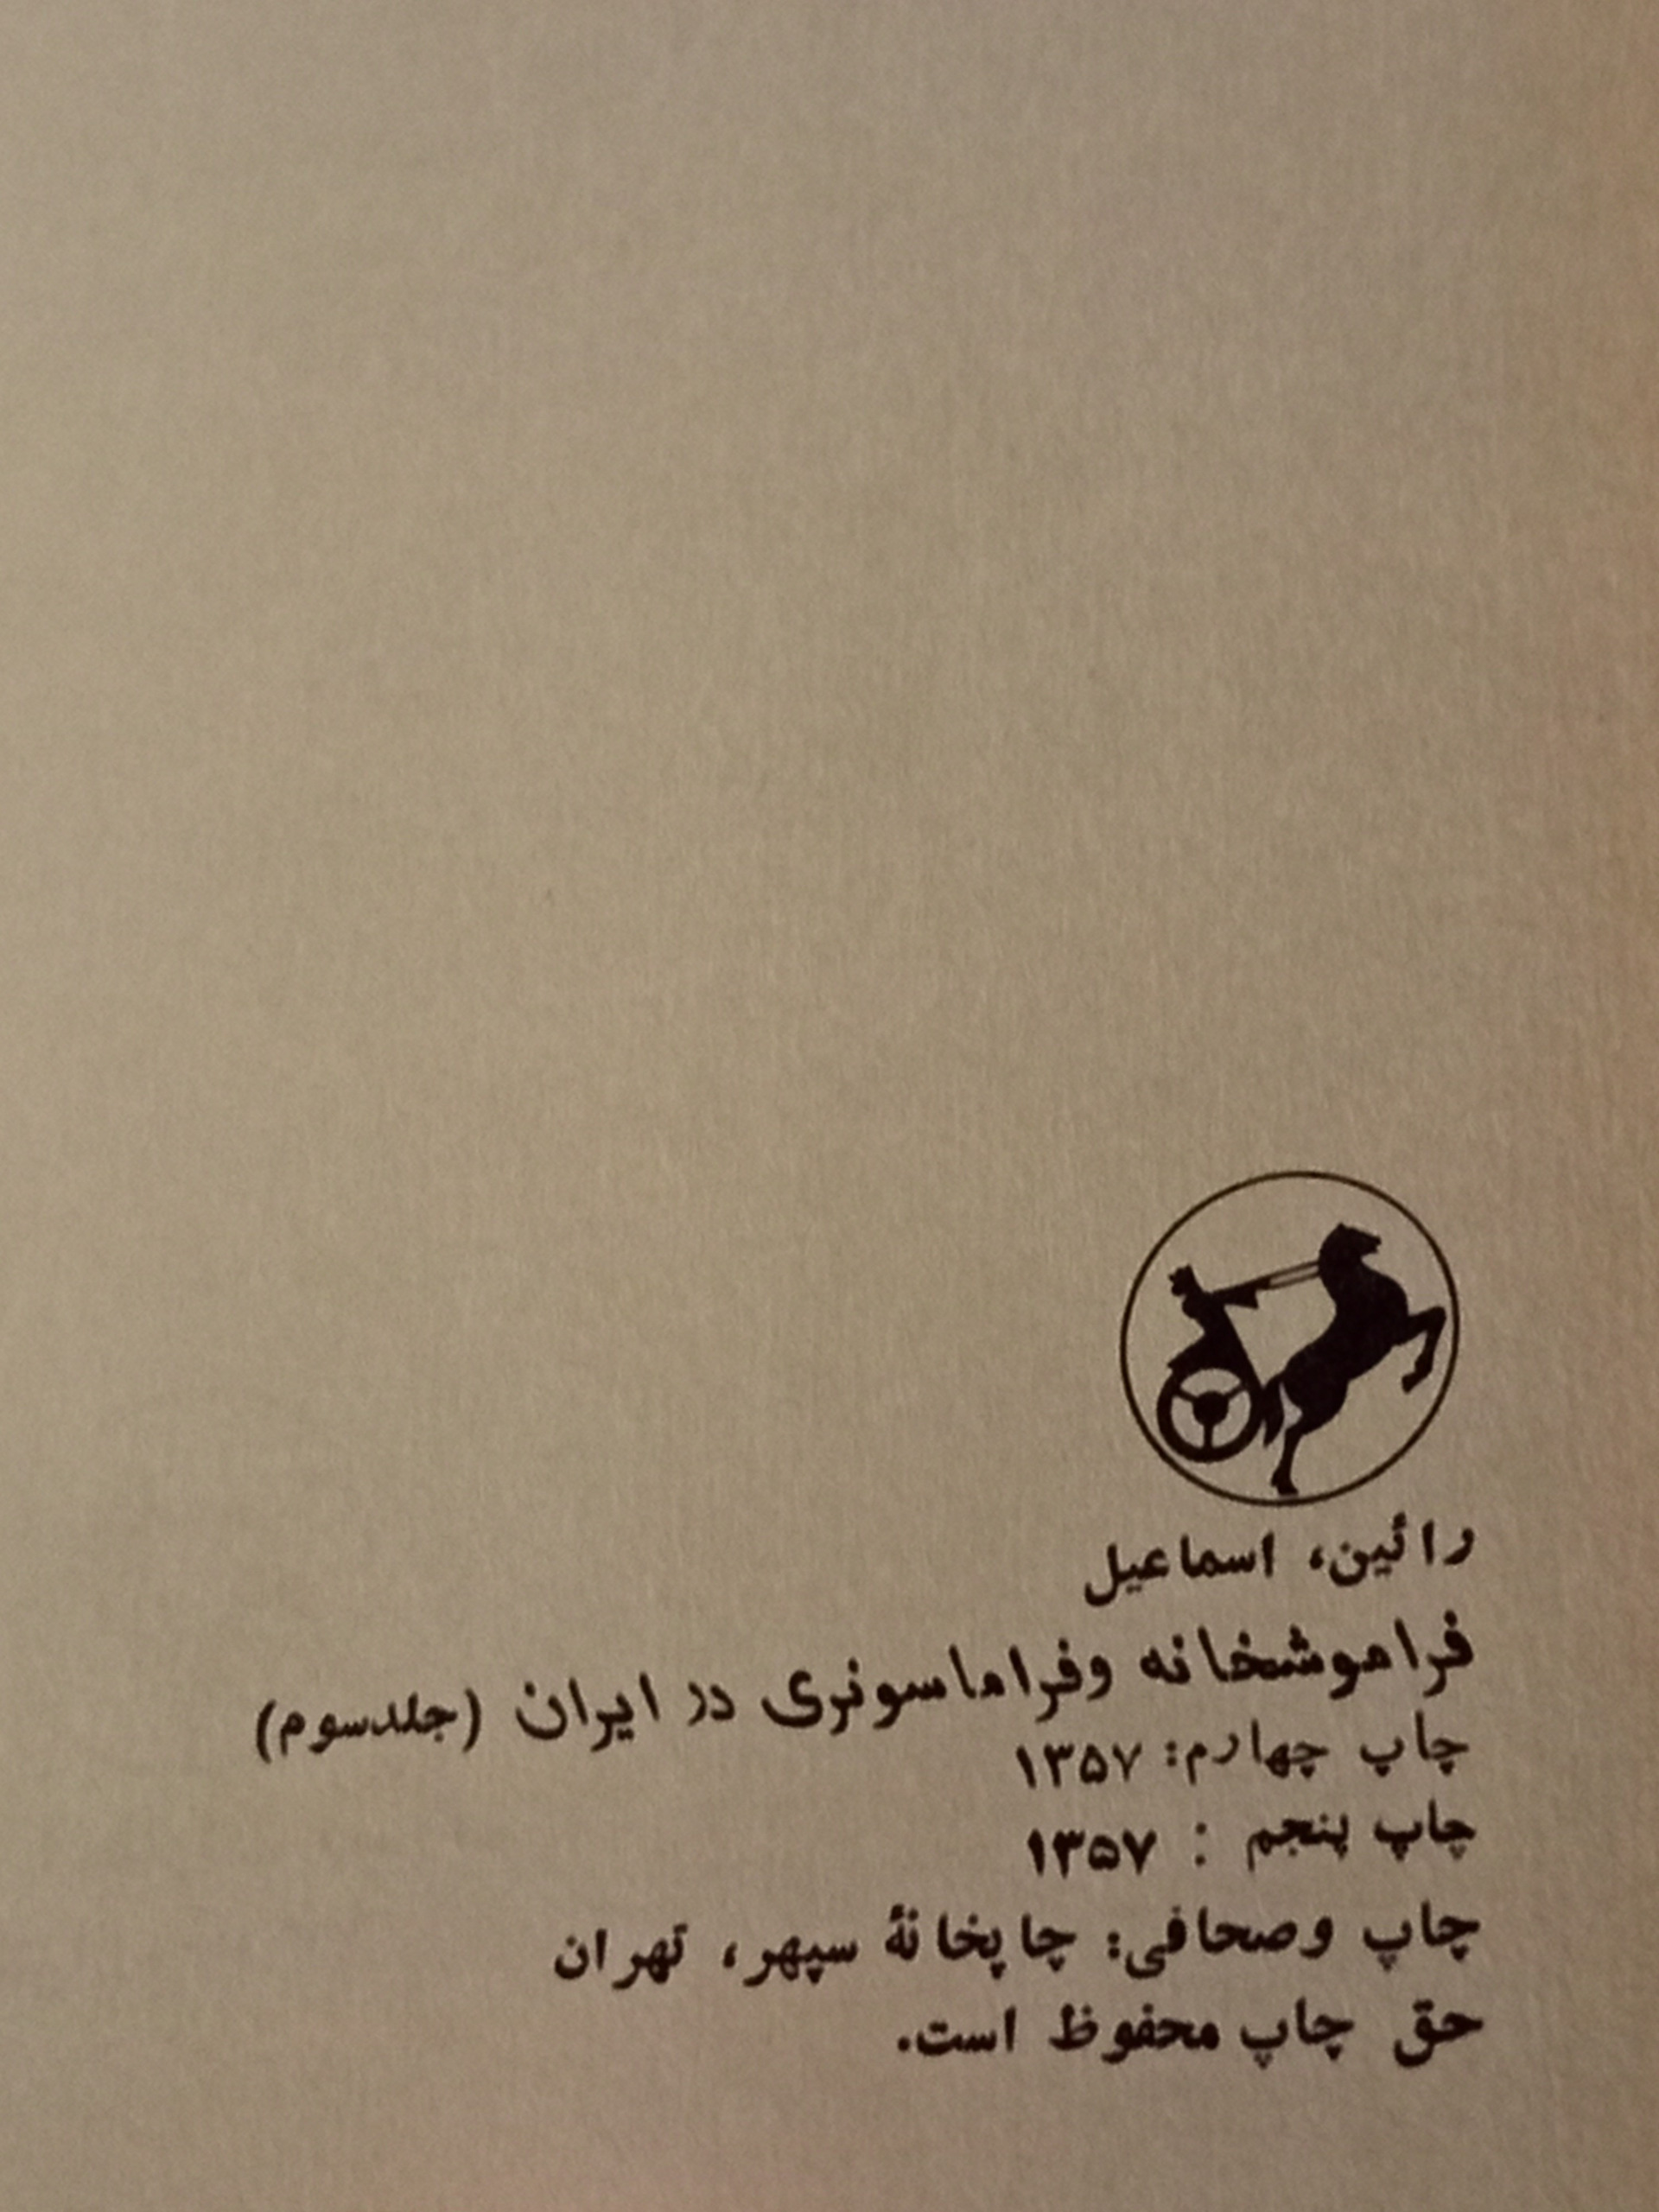 رائین، اسماعیل
فراموشخانه وفراماسونری در ایران (جلدسوم)
چاپ چهارم: ۱۳۵۷
چاپ پنجم : ۱۳۵۷
چاپ وصحافی: چاپخانهٔ سپهر، تهران
حق چاپ محفوظ است.